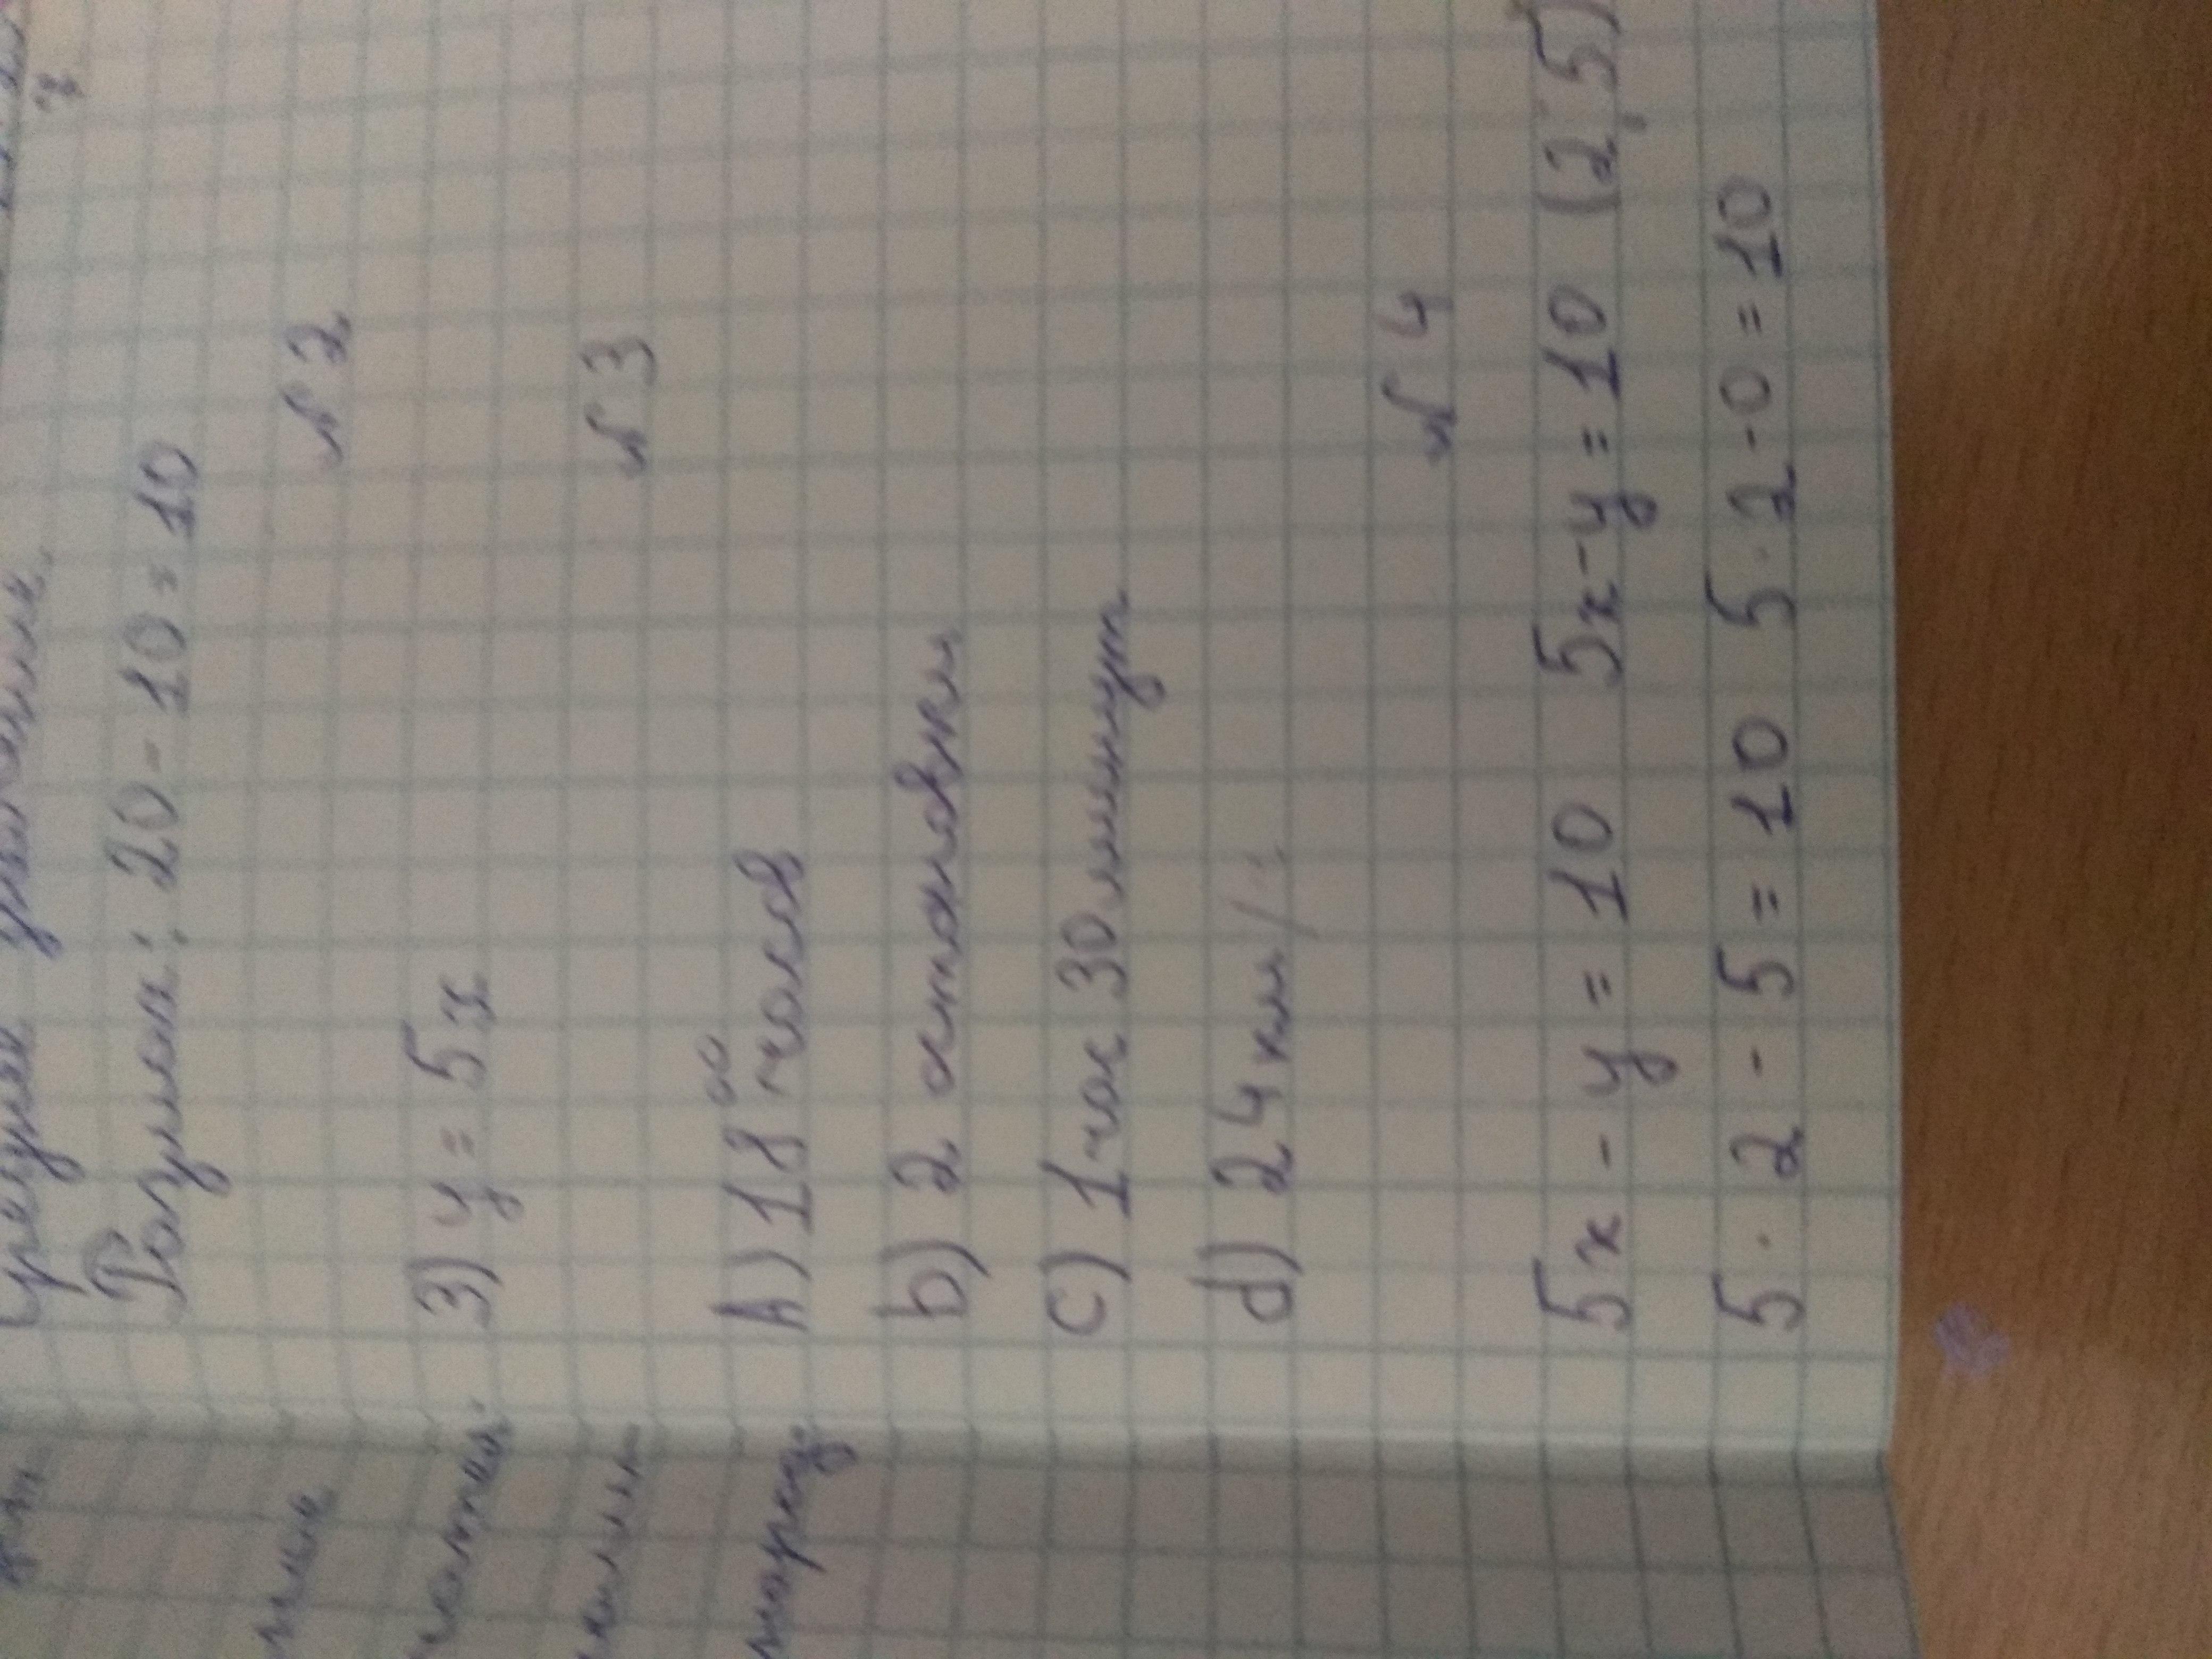 Размах: 20-10=10
№2
3) y=5x
№3
A) 18 часов
b) 2 остановки
c) 1 час 30 минут
d) 24 км/
№4
5x-y=10 5x-y=10 (2;5)
5·2-5=10 5·2-0=10